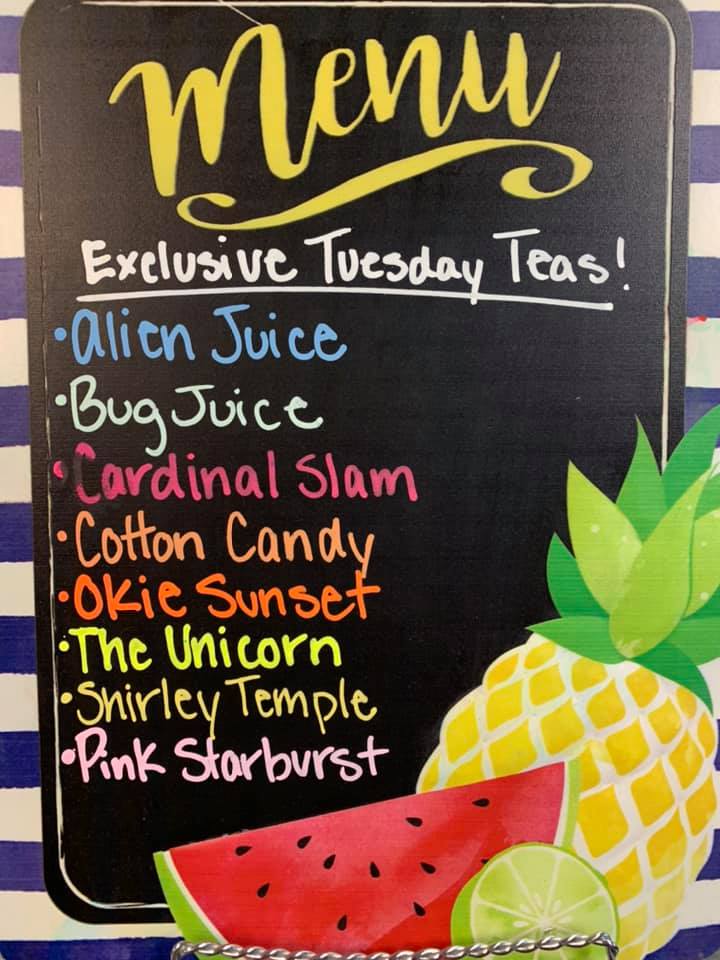 Menu
Exclusive Tuesday Teas!
•Alien Juice
•Bug Juice
•Cardinal Slam
•Cotton Candy
•Okie Sunset
•The Unicorn
•Shirley Temple
•Pink Starburst